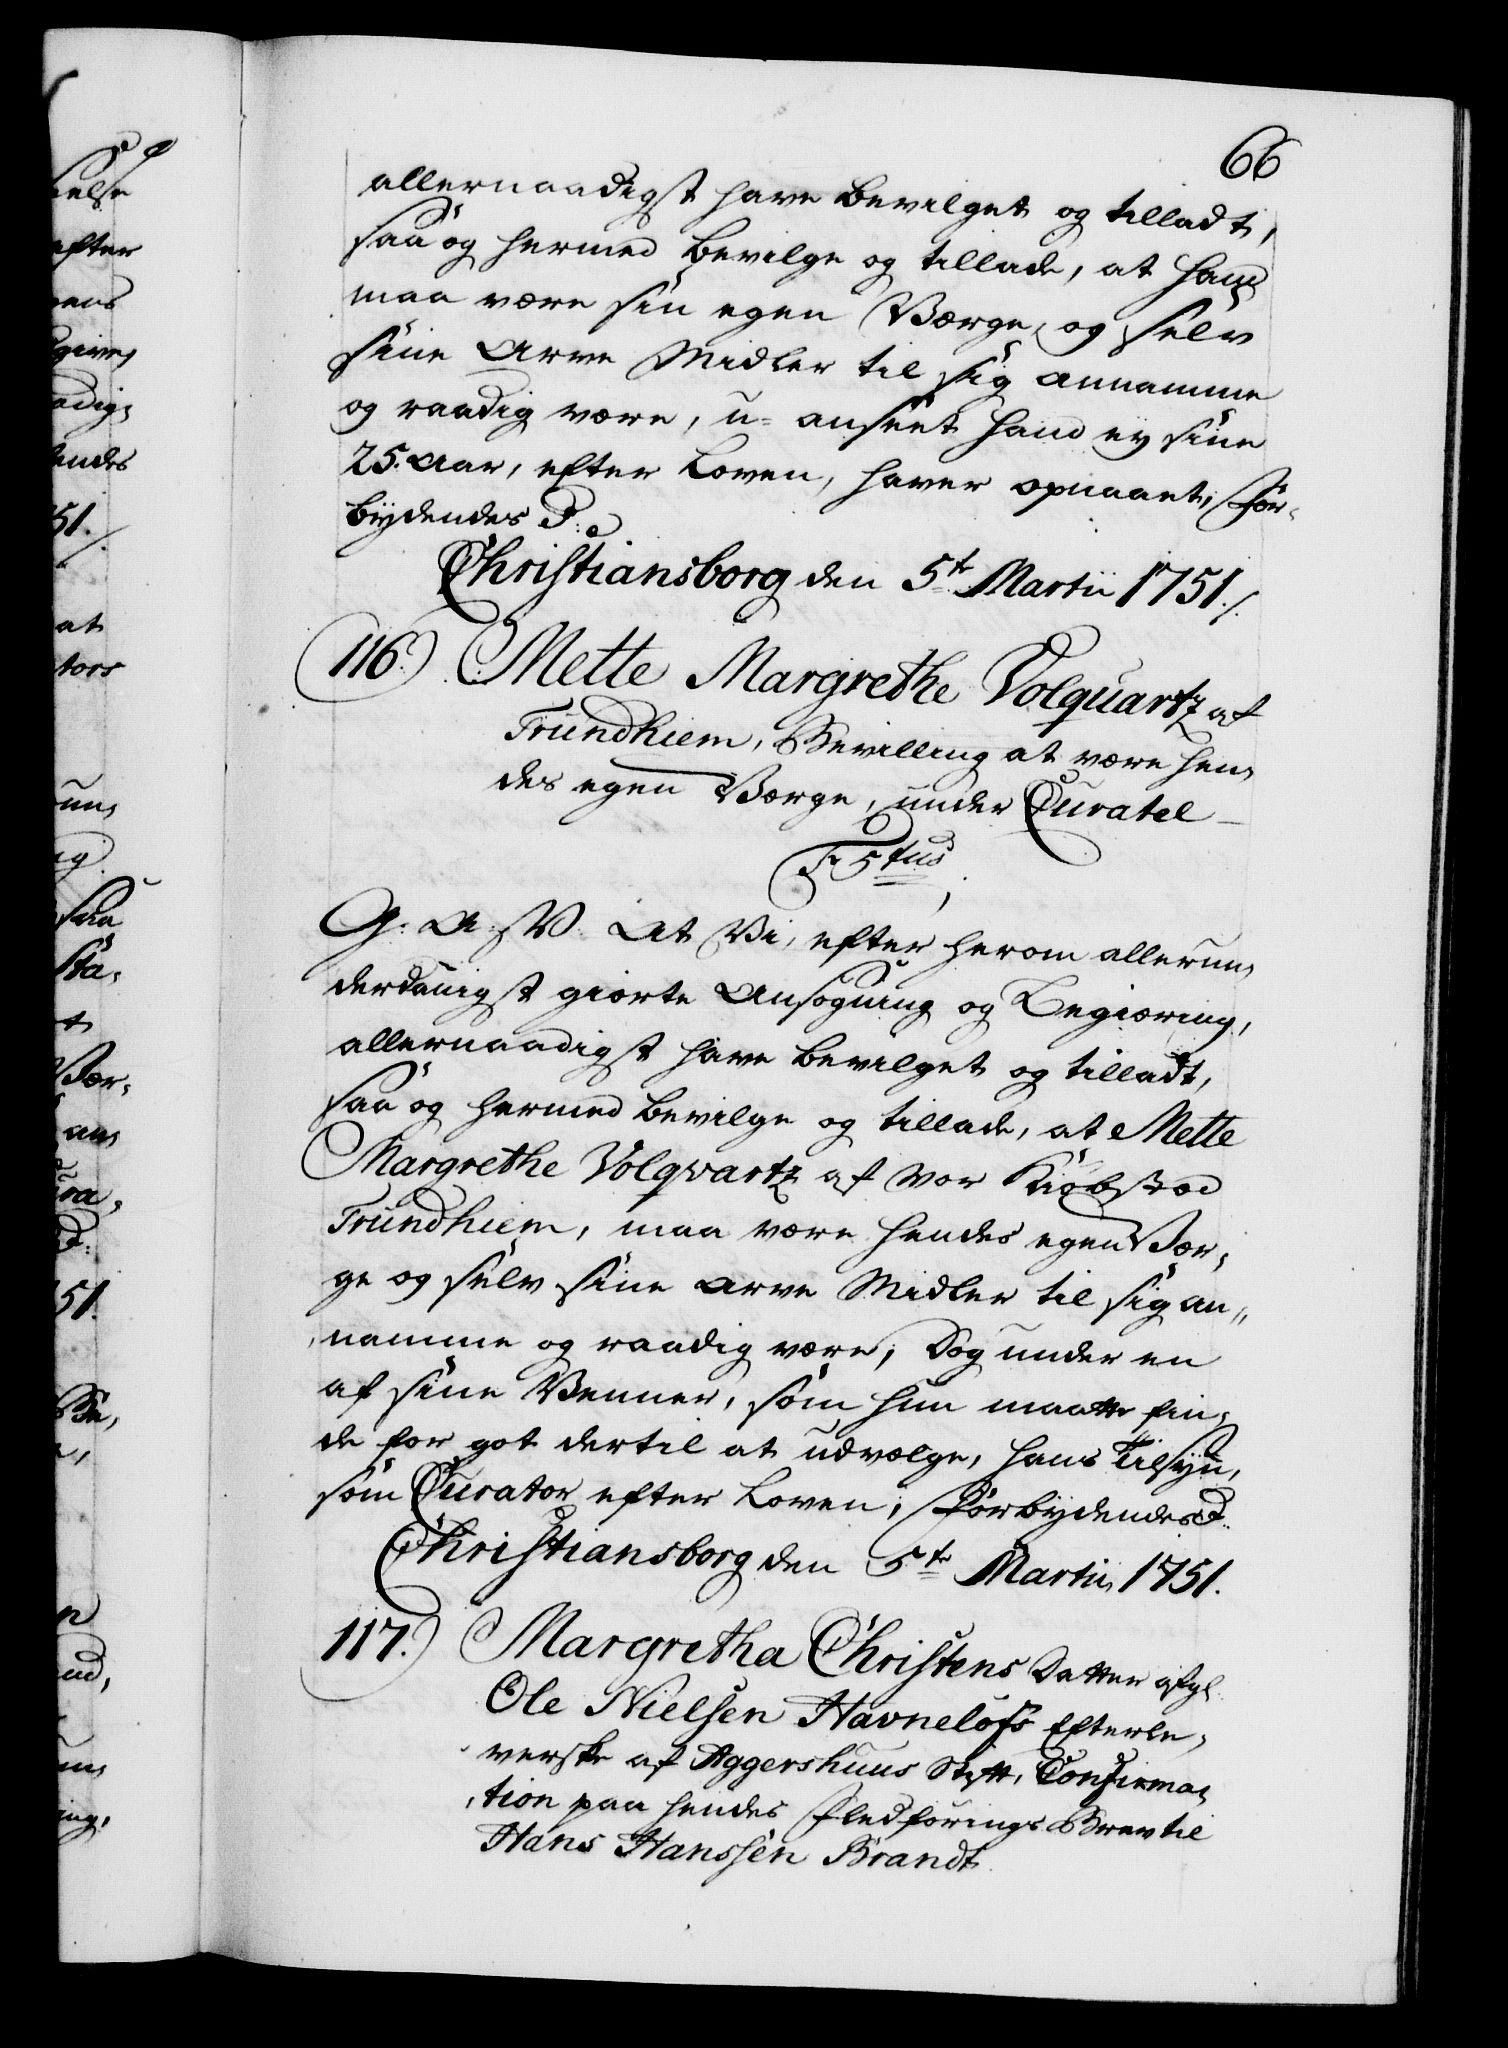 66
allernaadigst have bevilget og tilladt,
saa og hermed bevilge og tillade, at hand
maa være sin egen Værge, og selv
sine Arve Midler til sig annamme
og raadig være, u- anseet hand ey sine
25. Aar, efter Loven, haver opnaaet, For-
bydendes P:
Christiansborg den 5te Martii 1751./.
116.) Mette Margrethe Volquartz af
Trundhiem, Bevilling at være hen,
des egen Værge, under Curatel
F 5tus
G: A: V. At Vi, efter herom allerun,
derdanigst giorte Ansøgning og Begiæring,
allernaadigst have bevilget og tilladt,
saa og hermed bevilge og tillade, at Mette
Margrethe Volqvartz af vor Kiøbstæd
Trundhiem, maa være hendes egen Vær,
ge og selv sine Arve Midler til sig an,,
namme og raadig være, Dog under en
af sine Venner, som hun maatte fin,
de for got dertil at udvælge, hans Tilsyn,
som Curator efter Loven, Forbydendes P:
Christiansborg den 5te Martii 1751.
117.) Margretha Christens Datter afgl.
Ole Nielsen Havneløfs Efterle,
verske af Aggershuus Stift, Confirma,
tion paa hendes Fledførings Brev til
Hans Hanssen Brandt
else
efter
gens
give,
adig,
endes
51./.
at
tors
un,
ig
saa
Sta,
t
Vær,
an,
ra,
P:
51.
Be,
e,
n
nd,
un,
ing,